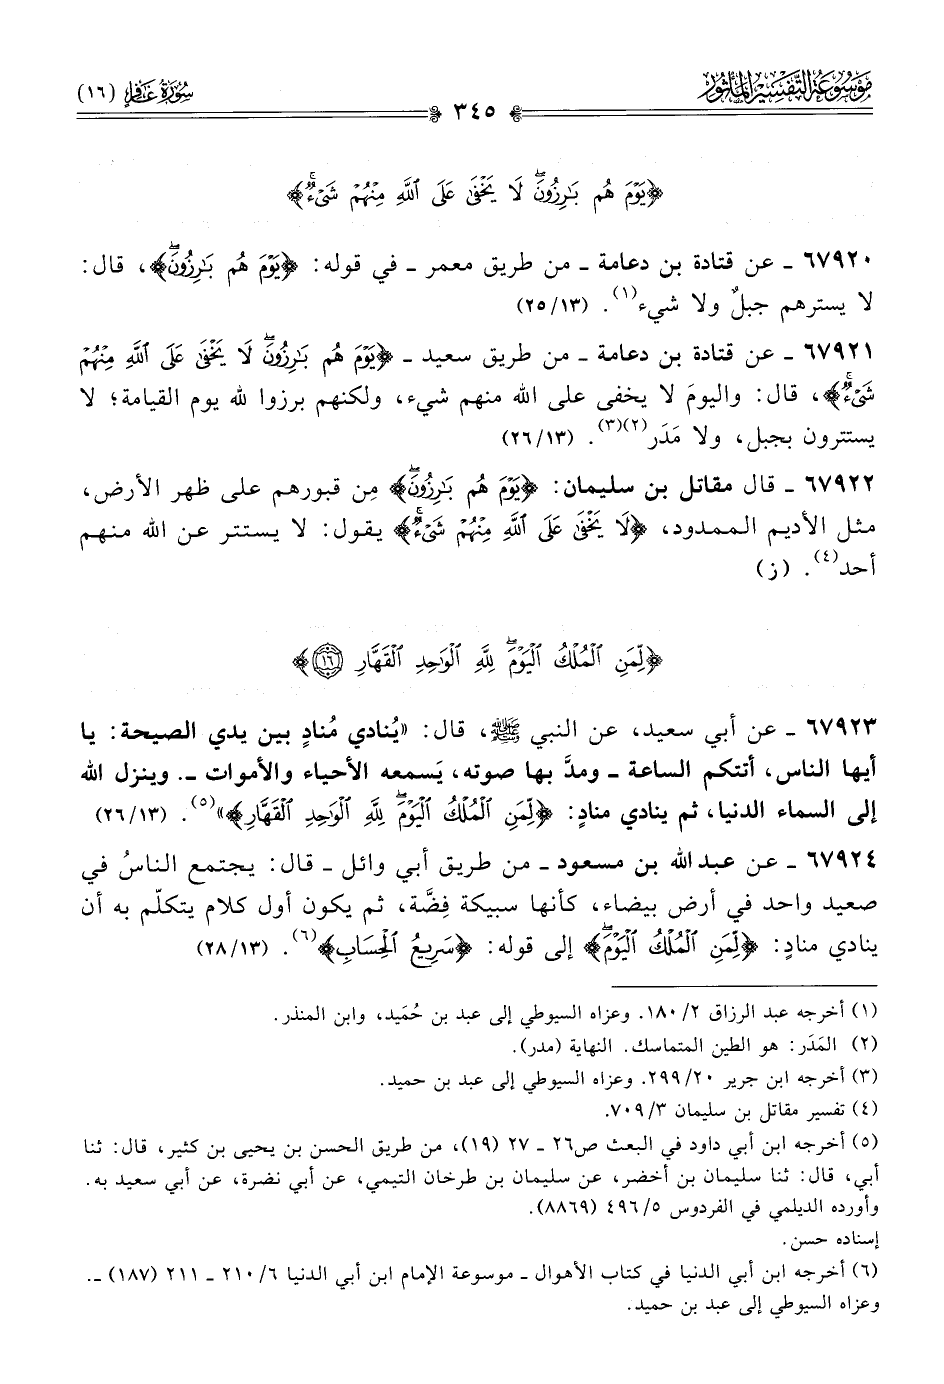 مَوْسُوعَةُ التَّفْسِيْرِ المَأْثُوْر
سُورَةُ غَافِر (١٦)
٣٤٥
﴿يَوْمَ هُم بَارِزُونَۖ لَا يَخْفَىٰ عَلَى اللَّهِ مِنْهُمْ شَىْءٌۚ﴾
٦٧٩٢٠ ـ عن قتادة بن دعامة ـ من طريق معمر ـ في قوله: ﴿يَوْمَ هُم بَارِزُونَۖ﴾، قال:
لا يسترهم جبلٌ ولا شيء(١). (١٣/٢٥)
٦٧٩٢١ ـ عن قتادة بن دعامة ـ من طريق سعيد ـ ﴿يَوْمَ هُم بَارِزُونَۖ لَا يَخْفَىٰ عَلَى اللَّهِ مِنْهُمْ
شَىْءٌۚ﴾، قال: واليومَ لا يخفى على الله منهم شيء، ولكنهم برزوا لله يوم القيامة؛ لا
يستترون بجبل، ولا مَدَر(٢)(٣). (١٣/٢٦)
٦٧٩٢٢ ـ قال مقاتل بن سليمان: ﴿يَوْمَ هُم بَارِزُونَۖ﴾ مِن قبورهم على ظهر الأرض،
مثل الأديم الممدود، ﴿لَا يَخْفَىٰ عَلَى اللَّهِ مِنْهُمْ شَىْءٌۚ﴾ يقول: لا يستتر عن الله منهم
أحد(٤). (ز)
﴿لِّمَنِ الْمُلْكُ الْيَوْمَۖ لِلَّهِ الْوَاحِدِ الْقَهَّارِ ١٦﴾
٦٧٩٢٣ ـ عن أبي سعيد، عن النبي ﷺ، قال: «يُنادي مُنادٍ بين يدي الصيحة: يا
أيها الناس، أتتكم الساعة ـ ومدَّ بها صوته، يَسمعه الأحياء والأموات ـ. وينزل الله
إلى السماء الدنيا، ثم ينادي منادٍ: ﴿لِّمَنِ الْمُلْكُ الْيَوْمَۖ لِلَّهِ الْوَاحِدِ الْقَهَّارِ﴾»(٥). (١٣/٢٦)
٦٧٩٢٤ ـ عن عبد الله بن مسعود ـ من طريق أبي وائل ـ قال: يجتمع الناسُ في
صعيد واحد في أرض بيضاء، كأنها سبيكة فِضَّة، ثم يكون أول كلام يتكلّم به أن
ينادي منادٍ: ﴿لِّمَنِ الْمُلْكُ الْيَوْمَۖ﴾ إلى قوله: ﴿سَرِيعُ الْحِسَابِ﴾(٦). (١٣/٢٨)
(١) أخرجه عبد الرزاق ٢/ ١٨٠. وعزاه السيوطي إلى عبد بن حُمَيد، وابن المنذر.
(٢) المَدَر: هو الطين المتماسك. النهاية (مدر).
(٣) أخرجه ابن جرير ٢٠/ ٢٩٩. وعزاه السيوطي إلى عبد بن حميد.
(٤) تفسير مقاتل بن سليمان ٣/ ٧٠٩.
(٥) أخرجه ابن أبي داود في البعث ص٢٦ ـ ٢٧ (١٩)، من طريق الحسن بن يحيى بن كثير، قال: ثنا
أبي، قال: ثنا سليمان بن أخضر، عن سليمان بن طرخان التيمي، عن أبي نضرة، عن أبي سعيد به.
وأورده الديلمي في الفردوس ٥/ ٤٩٦ (٨٨٦٩).
إسناده حسن.
(٦) أخرجه ابن أبي الدنيا في كتاب الأهوال ـ موسوعة الإمام ابن أبي الدنيا ٦/ ٢١٠ ـ ٢١١ (١٨٧) ـ.
وعزاه السيوطي إلى عبد بن حميد.